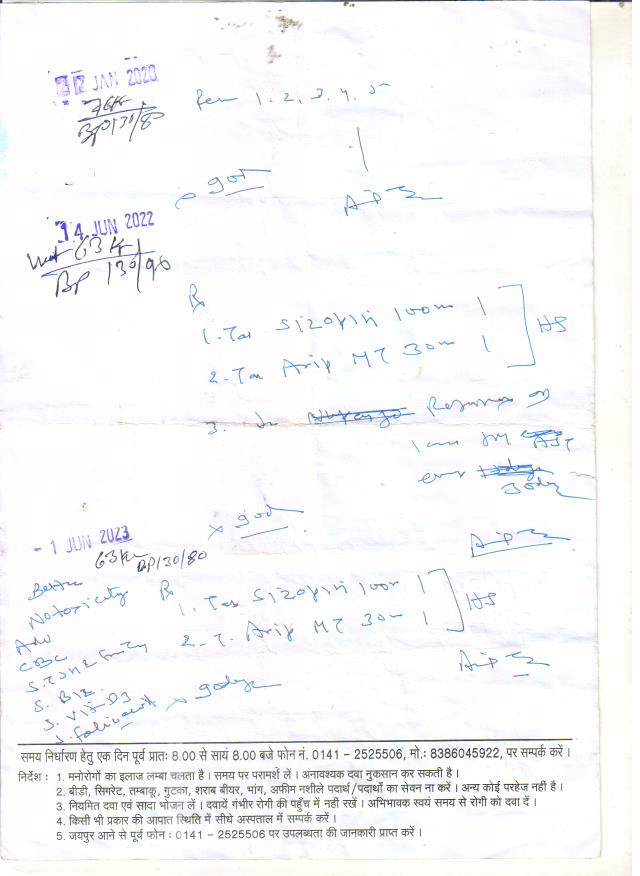 JAN 2020
BP 130/80
1. 2. 3. 4. 5
x 90d
14 JUN 2022
Wt 63 Kg
BP 130/90
Rx
1. Tab Sizopin 100m 1
2. Tab Arip MT 30m 1
HS
3.
x 90d
- 1 JUN 2023
63 Kg BP 130/80
Better
No toxicity
Adv
CBC
S. B12
S. Vit D3
Rx
1. Tab Sizopin 100m 1
2. T. Arip MT 30m 1
HS
x 90dy
समय निर्धारण हेतु एक दिन पूर्व प्रातः 8.00 से सायं 8.00 बजे फोन नं. 0141 – 2525506, मो.: 8386045922, पर सम्पर्क करें ।
निर्देश : 1. मनोरोगों का इलाज लम्बा चलता है । समय पर परामर्श लें । अनावश्यक दवा नुकसान कर सकती है ।
2. बीड़ी, सिगरेट, तम्बाकू, गुटका, शराब बीयर, भांग, अफीम नशीले पदार्थ/पदार्थों का सेवन ना करें । अन्य कोई परहेज नहीं है ।
3. नियमित दवा एवं सादा भोजन लें । दवायें गंभीर रोगी की पहुँच में नही रखें । अभिभावक स्वयं समय से रोगी को दवा दें ।
4. किसी भी प्रकार की आपात स्थिति में सीधे अस्पताल में सम्पर्क करें ।
5. जयपुर आने से पूर्व फोन : 0141 – 2525506 पर उपलब्धता की जानकारी प्राप्त करें ।